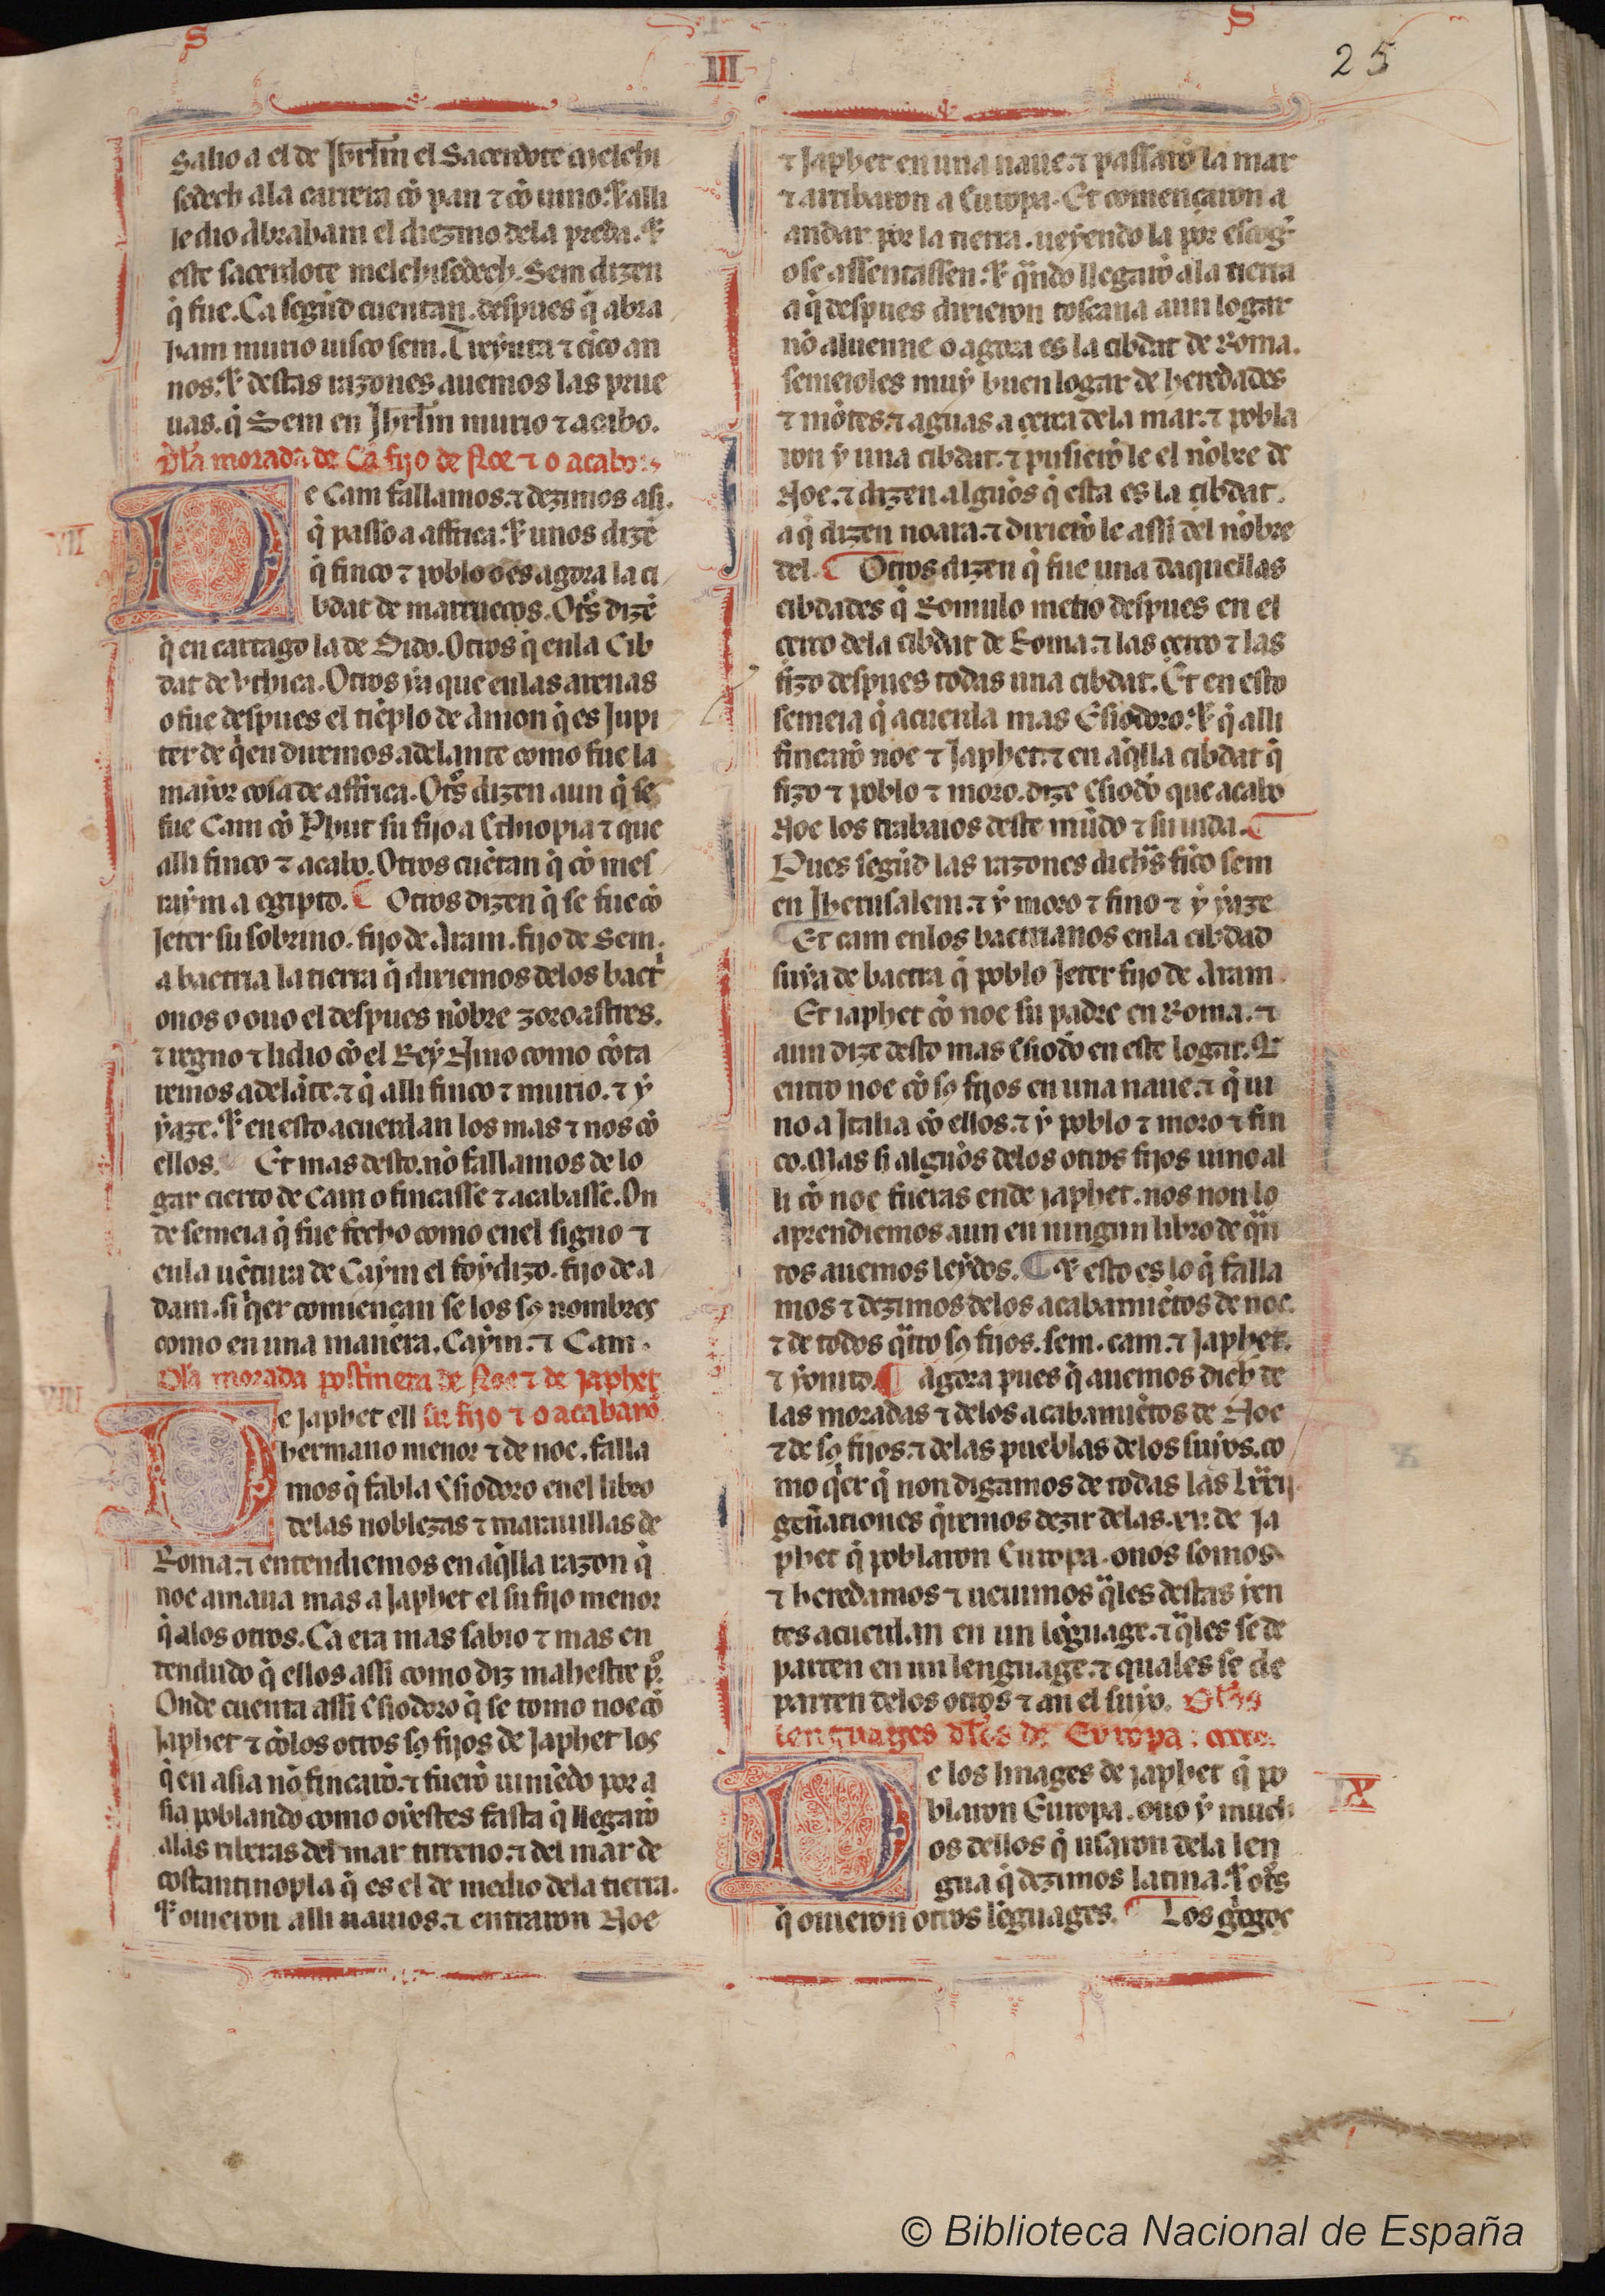 S
S
III
25
salio a el de Jħrlm̄ el Sacerdote melchi
sedech ala carrera cõ pan ⁊ cõ uino. ⁊ alli
le dio Abraham el diezmo dela preda. ⁊
este sacerdote melchisedech. Sem dizen
q̃ fue. Ca segũd cuentan. despues q̃ abra
ham murio uisco sem. Treynta ⁊ cĩco an
nos. ⁊ destas razones auemos las prue
uas. q̃ Sem en Jħrlm̄ murio ⁊ acabo.
Dla morada de Cã fijo de Noe ⁊ o acabo
VII
De Cam fallamos. ⁊ dezimos asi.
q̃ passo a affrica. ⁊ unos dizẽ
q̃ finco ⁊ poblo o es agora la ci
bdat de marruecos. Otros dizẽ
q̃ en cartago la de Dido. Otros q̃ enla Cib
dat de Vthica. Otros ya que enlas arenas
o fue despues el tẽplo de Amon q̃ es Jupi
ter de q̃en diremos adelante como fue la
maior cosa de affrica. Otros dizen aun q̃ se
fue Cam cõ Phut su fijo a Ethiopia ⁊ que
alli finco ⁊ acabo. Otros cuẽtan q̃ cõ mes
raym a egipto. ¶ Otros dizen q̃ se fue cõ
Jeter su sobrino. fijo de Aram. fijo de Sem.
a bactria la tierra q̃ diriemos delos bactri
onos o ouo el despues nõbre zoroastres.
⁊ regno ⁊ lidio cõ el Rey Nino como cõta
remos adelãte. ⁊ q̃ alli finco ⁊ murio. ⁊ y
yaze. ⁊ en esto acuerdan los mas ⁊ nos cõ
ellos. Et mas desto. nõ fallamos de lo
gar cierto de Cam o fincasse ⁊ acabasse. On
de semeia q̃ fue fecho como enel signo ⁊
enla uẽtura de Caym el foydizo. fijo de a
dam. si q̃er comiençan se los sos nombres
como en una manera. Caym. ⁊ Cam.
Dla morada postrimera de Noe ⁊ de Japhet
su fijo ⁊ o acabarõ
VIII
De Japhet ell
hermano menor ⁊ de noe. falla
mos q̃ fabla Esiodoro enel libro
delas noblezas ⁊ marauillas de
Roma. ⁊ entendiemos en aq̃lla razon q̃
noe amaua mas a Japhet el su fijo menor
q̃ alos otros. Ca era mas sabio ⁊ mas en
tendudo q̃ ellos assi como diz mahestre p̃o.
Onde cuenta assi Esiodoro q̃ se tomo noe cõ
Japhet ⁊ cõlos otros sos fijos de Japhet los
q̃ en asia nõ fincarõ. ⁊ fuerõ uiniẽdo por a
sia poblando como oyestes fasta q̃ llegarõ
alas riberas del mar tirreno. ⁊ del mar de
costantinopla q̃ es el de medio dela tierra.
⁊ ouieron alli nauios. ⁊ entraron Noe
⁊ Japhet en una naue. ⁊ passarõ la mar
⁊ arribaron a Europa. Et començaron a
andar por la tierra. ueyendo la por escog̃
o se assentassen. ⁊ q̃ndo llegarõ ala tierra
a q̃ despues dixieron toscana a un logar
nõ aluenne o agora es la cibdat de Roma.
semeioles muy buen logar de heredades
⁊ mõtes. ⁊ aguas a cerca dela mar. ⁊ pobla
ron y una cibdat. ⁊ pusierõ le el nõbre de
Noe. ⁊ dizen algũos q̃ esta es la cibdat.
a q̃ dizen noara. ⁊ dixierõ le assi del nõbre
del. ¶ Otros dizen q̃ fue una daquellas
cibdades q̃ Romulo metio despues en el
cerco dela cibdat de Roma. ⁊ las cerco ⁊ las
fizo despues todas una cibdat. Et en esto
semeia q̃ acuerda mas Esiodoro. ⁊ q̃ alli
fincarõ noe ⁊ Japhet. ⁊ en aq̃lla cibdat q̃
fizo ⁊ poblo ⁊ moro. dize Esiodõ que acabo
Noe los trabaios deste mũdo ⁊ su uida. ¶
Pues segũd las razones dichas fĩco sem
en Jherusalem. ⁊ y moro ⁊ fino ⁊ y yaze
Et cam enlos bactrianos enla cibdad
suya de bactra q̃ poblo Jeter fijo de Aram.
Et iaphet cõ noe su padre en Roma. ⁊
aun dize desto mas Esiodõ en este logar. q̃
entro noe cõ sos fijos en una naue. ⁊ q̃ ui
no a Italia cõ ellos. ⁊ y poblo ⁊ moro ⁊ fin
co. Mas si algũos delos otros fijos uino al
li cõ noe fueras ende japhet. nos non lo
aprendiemos aun en ningun libro de q̃n
tos auemos leydos. ¶ ⁊ esto es lo q̃ falla
mos ⁊ dezimos delos acabamiẽtos de noe.
⁊ de todos q̃tro sos fijos. sem. cam. ⁊ Japhet.
⁊ yonito. ¶ Agora pues q̃ auemos dicħ de
las moradas ⁊ delos acabamiẽtos de Noe
⁊ de sos fijos. ⁊ delas pueblas delos suyos. co
mo q̃er q̃ non digamos de todas las Lxxij.
gẽnationes q̃remos dezir delas .xv. de Ja
phet q̃ poblaron Europa. o nos somos
⁊ heredamos ⁊ ueuimos q̃les destas yen
tes acuerdan en un lẽguage. ⁊ q̃les se de
parten en un lenguage. ⁊ quales se de
parten delos otros ⁊ an el suyo. Dlos
lenguages dlos de Europa
IX
De los linages de japhet q̃ po
blaron Europa. ouo y much
os dellos q̃ usaron dela len
gua q̃ dezimos latina. ⁊ otros
q̃ ouieron otros lẽguages. ¶ Los g̃egos
© Biblioteca Nacional de España